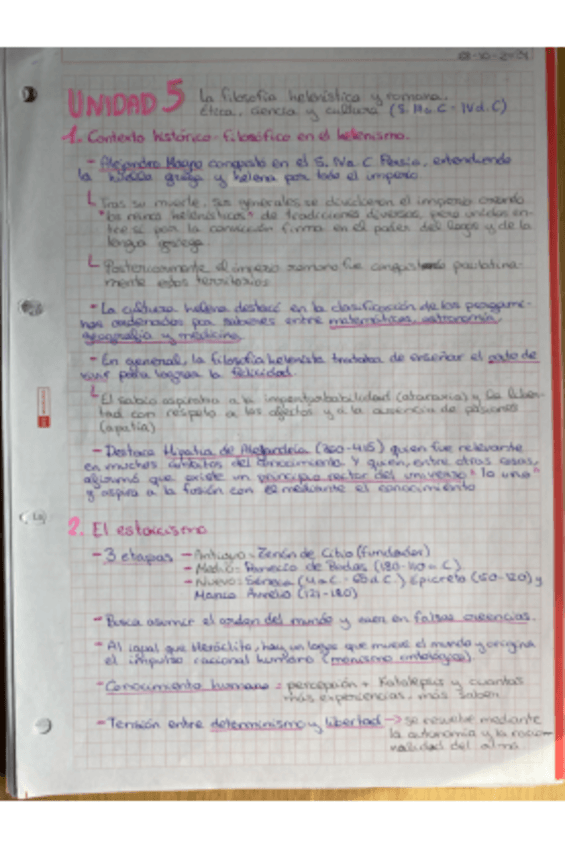 UNIDAD 5 La filosofía helenística y romana.
ética, ciencia y cultura (S. III a.C - IV d.C)
1. Contexto histórico-filosófico en el helenismo.
- Alejandro Magno conquistó en el S. IV a.C Persia, extendiendo
la griega y helena por todo el imperio
Tras su muerte, sus generales se dividieron el imperio creando
"los reinos helenísticos" de tradiciones diversas, pero unidos en-
tre sí por la convicción firme en el poder del logos y de la
lengua griega
Posteriormente el imperio romano fue conquistando paulatina-
mente estos territorios
- La cultura helena destacó en la clasificación de los pergami-
nos ordenados por saberes entre matemáticas, astronomía,
geografía y medicina
- En general, la filosofía helenista trataba de enseñar el modo de
vivir para lograr la felicidad.
El sabio aspiraba a la imperturbabilidad (ataraxia) y la liber-
tad con respeto a los afectos y a la ausencia de pasiones
(apatía)
- Destaca Hipatia de Alejandría (360-415) quien fue relevante
en muchos ámbitos del conocimiento y quien, entre otras cosas,
afirmó que existe un principio rector del universo "lo uno"
y aspira a la fusión con él mediante el conocimiento
2. El estoicismo
- 3 etapas - Antiguo: Zenón de Citio (fundador)
- Medio: Panecio de Rodas (180-110 a.C)
- Nuevo: Séneca (4 a.C - 65 d.C.) Epicteto (50-120) y
Marco Aurelio (121-180)
- Busca asumir el orden del mundo y caer en falsas creencias.
- Al igual que Heráclito, hay un logos que mueve el mundo y origina
el impulso racional humano (monismo ontológico)
- Conocimiento humano = percepción + Katalepsis y cuantas
más experiencias, más saber
- Tensión entre determinismo y libertad → se resuelve mediante
la autonomía y la racio-
nalidad del alma